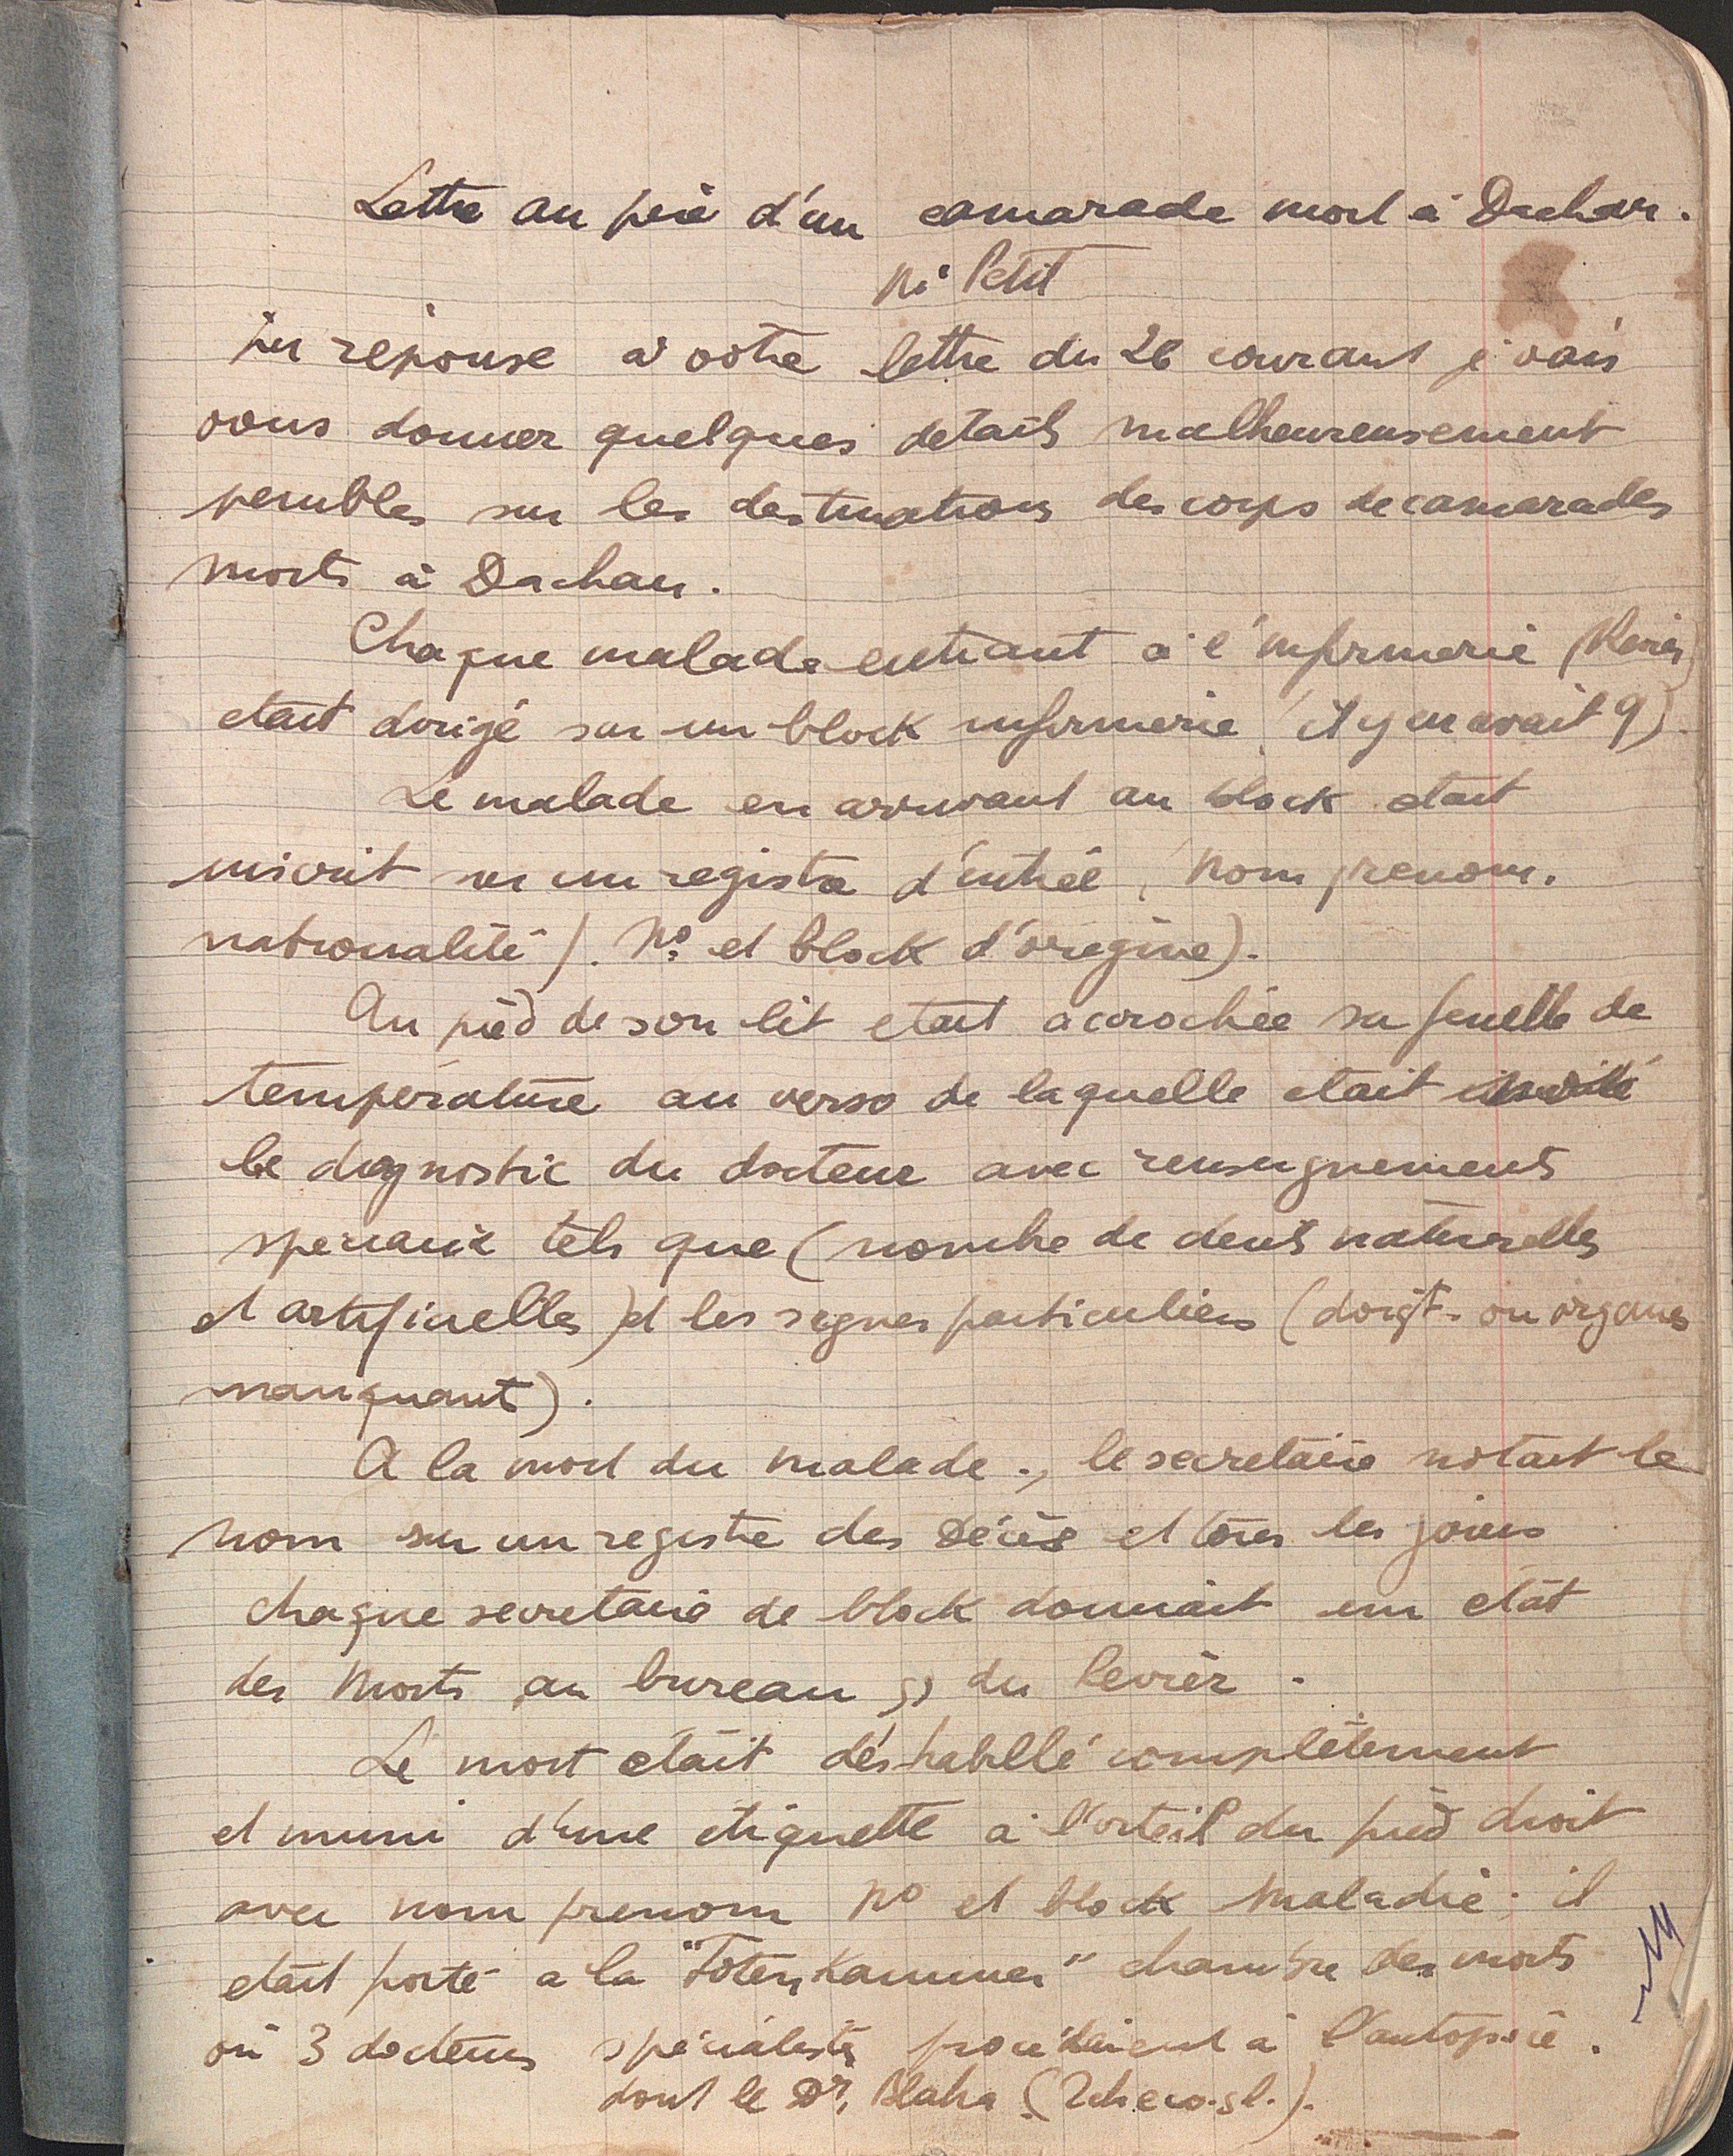 Lettre au père d'un camarade mort à Dachau.
Mr Petit
En réponse à votre lettre du 26 courant je vais
vous donner quelques details malheureusement
penibles sur les destinations des corps de camarades
morts à Dachau.
Chaque malade entrant à l'infirmerie (Revier)
etait dirigé sur un block infirmerie (il y en avait 9)
Le malade en arrivant au block etait
inscrit sur un registre d'entrée (nom prenom.
nationalité). No et block d'origine).
Au pied de son lit etait accrochée sa feuille de
température au verso de laquelle etait
le diagnostic du docteur avec renseignements
speciaux tels que (nombre de dents naturelles
et artificielles) et les signes particuliers (doigt ou organes
manquant).
A la mort du malade., le secretaire notait le
nom sur un registre des Décès et tous les jours
chaque secretaire de block donnait un état
des Morts au bureau du Revier.
Le mort était déshabillé complètement
et muni d'une étiquette à l'orteil du pied droit
avec nom prenom No et block Maladie; il
etait porté a la "Totenkammer" chambre des morts
où 3 docteurs spécialistes procédaient à l'autopsie.
dont le Dr. Blaha (Tcheco.sl.).